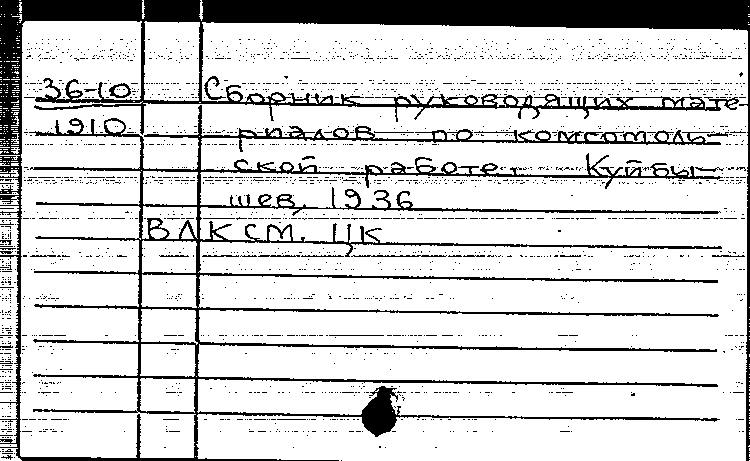 36-10 Сборник руководящих мате-
1910 риалов по комсомоль-
ской работе. Куйбы-
шев, 1936
ВЛКСМ. ЦК